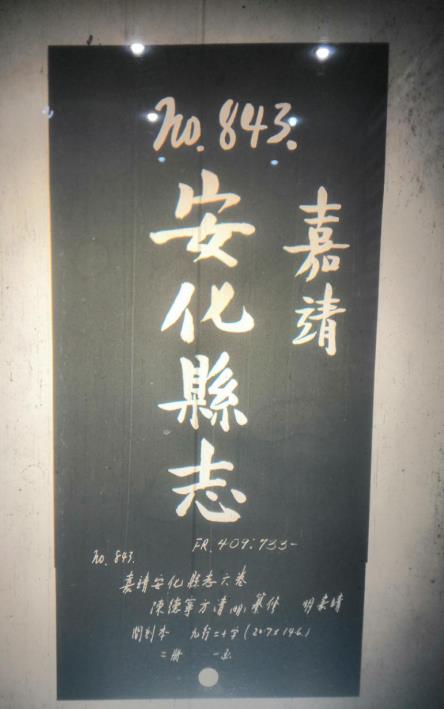 no. 843.
嘉靖
安化縣志
FR. 409:733-
no. 843.
嘉靖安化縣志六卷
陳德寧方清(明)纂修 明嘉靖
間刻本 九行二十字(20.7x14.6)
二冊 一函